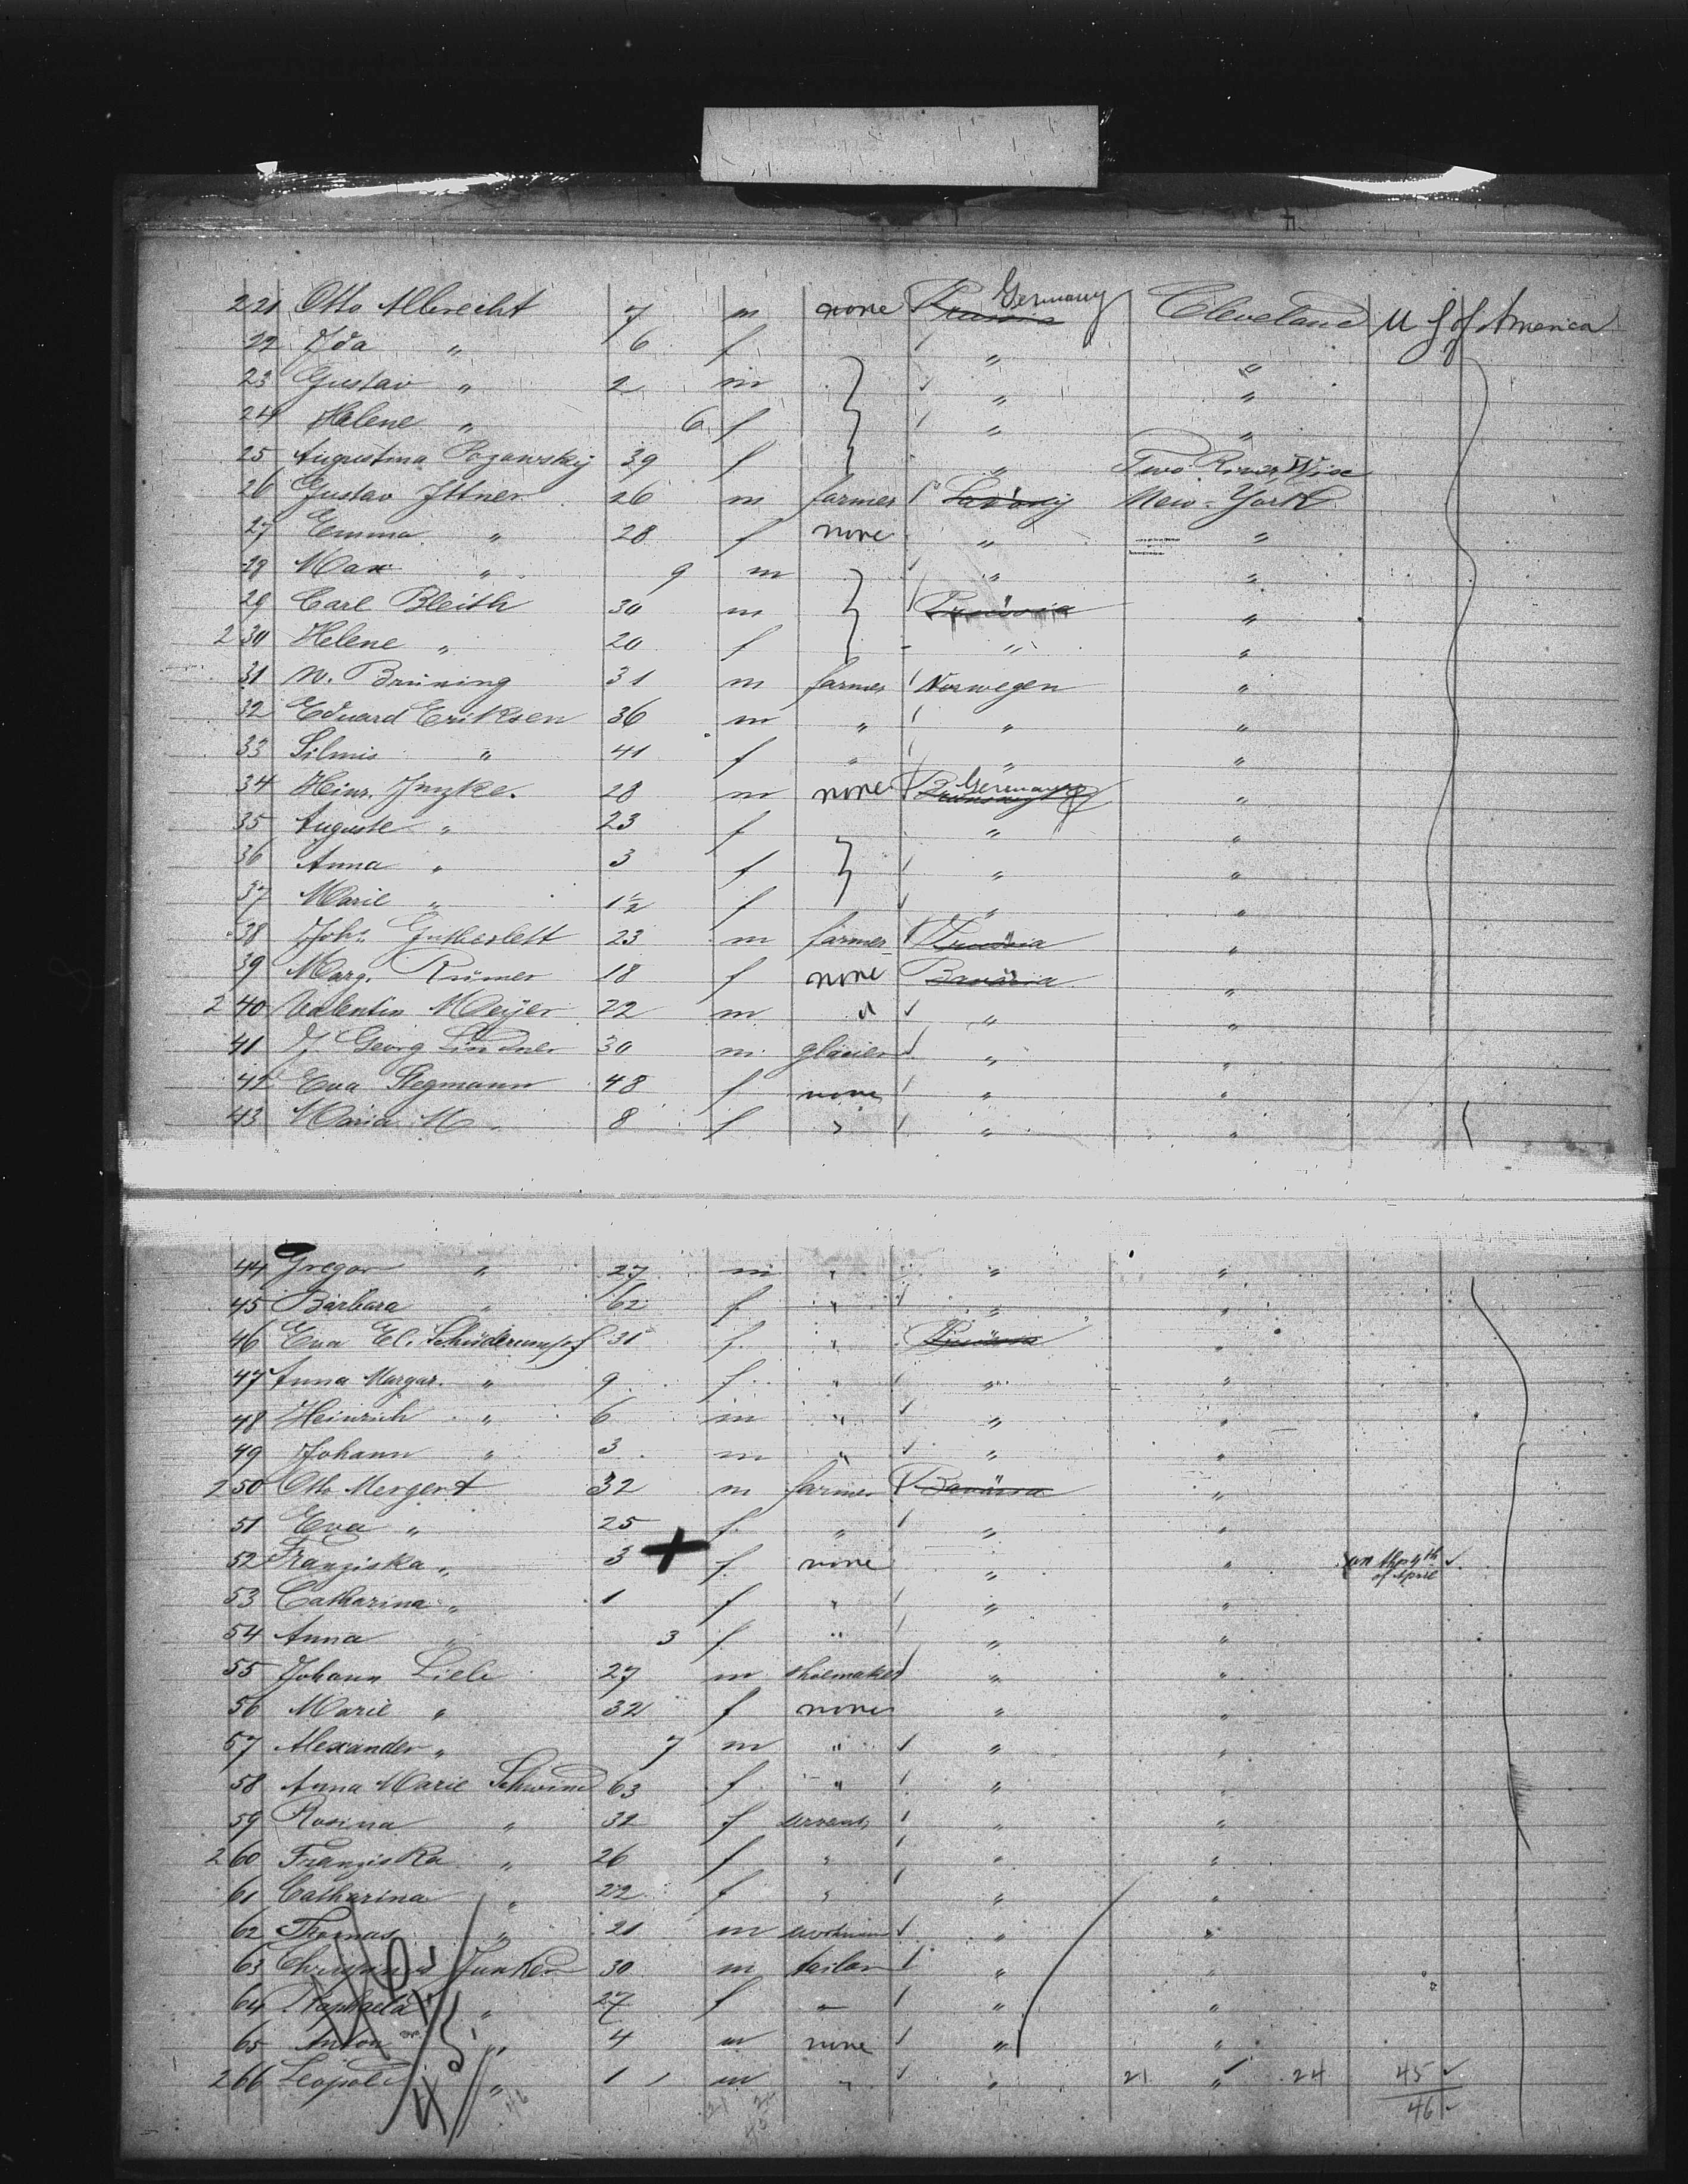 221 Otto Albrecht 7 m none Prussia Germany Cleveland U S of America
22 Ida " 6 f " "
23 Gustav " 2 m " "
24 Helene " 6 f " "
25 Augustina Pozanskij 39 f " Two River, Wisc
26 Gustav Ittner 26 m farmer New-York
27 Emma " 28 f none " "
28 Max " 9 m " "
29 Carl Bleith 30 m Prussia "
230 Helene " 20 f " "
31 W. Brüning 31 m farmer Norwegen "
32 Eduard Eriksen 36 m " " "
33 Silmis " 41 f " " "
34 Heinr. 28 m none Germany "
35 Auguste " 23 f " "
36 Anna " 3 f " "
37 Marie " 1½ f " "
38 Joh. 23 m farmer Prussia "
39 Marg. Römer 18 f none Bavaria "
240 Valentin Meijer 22 m " " "
41 J. Georg Lindner 30 m glacier " "
42 Eva Stegmann 48 f none " "
43 Maria M " 8 f " " "
44 Gregor " 27 m " " "
45 Barbara " 62 f " " "
46 Eva El. Schüderumpf 31 f " "
47 Anna Margar. " 9 f " " "
48 Heinrich " 6 m " " "
49 Johann " 3 m " " "
250 Otto Mergert 32 m farmer Bavaria "
51 Eva " 25 f " " "
52 Franziska " 3 f none " " on the 4th of April
53 Catharina " 1 f " " "
54 Anna " 3 f " " "
55 Johann Liele 27 m shoemaker " "
56 Marie " 32 f none " "
57 Alexander " 7 m " " "
58 Anna Marie Schwind 63 f " " "
59 Rosina " 32 f servant " "
260 Franziska " 26 f " " "
61 Catharina " 22 f " " "
62 Thomas " 21 m " "
63 Junker 30 m tailor " "
64 Raphaela " 27 f " " "
65 Anton " 4 m none " "
266 Leopold " 1 m " " 21 " 24 45
46